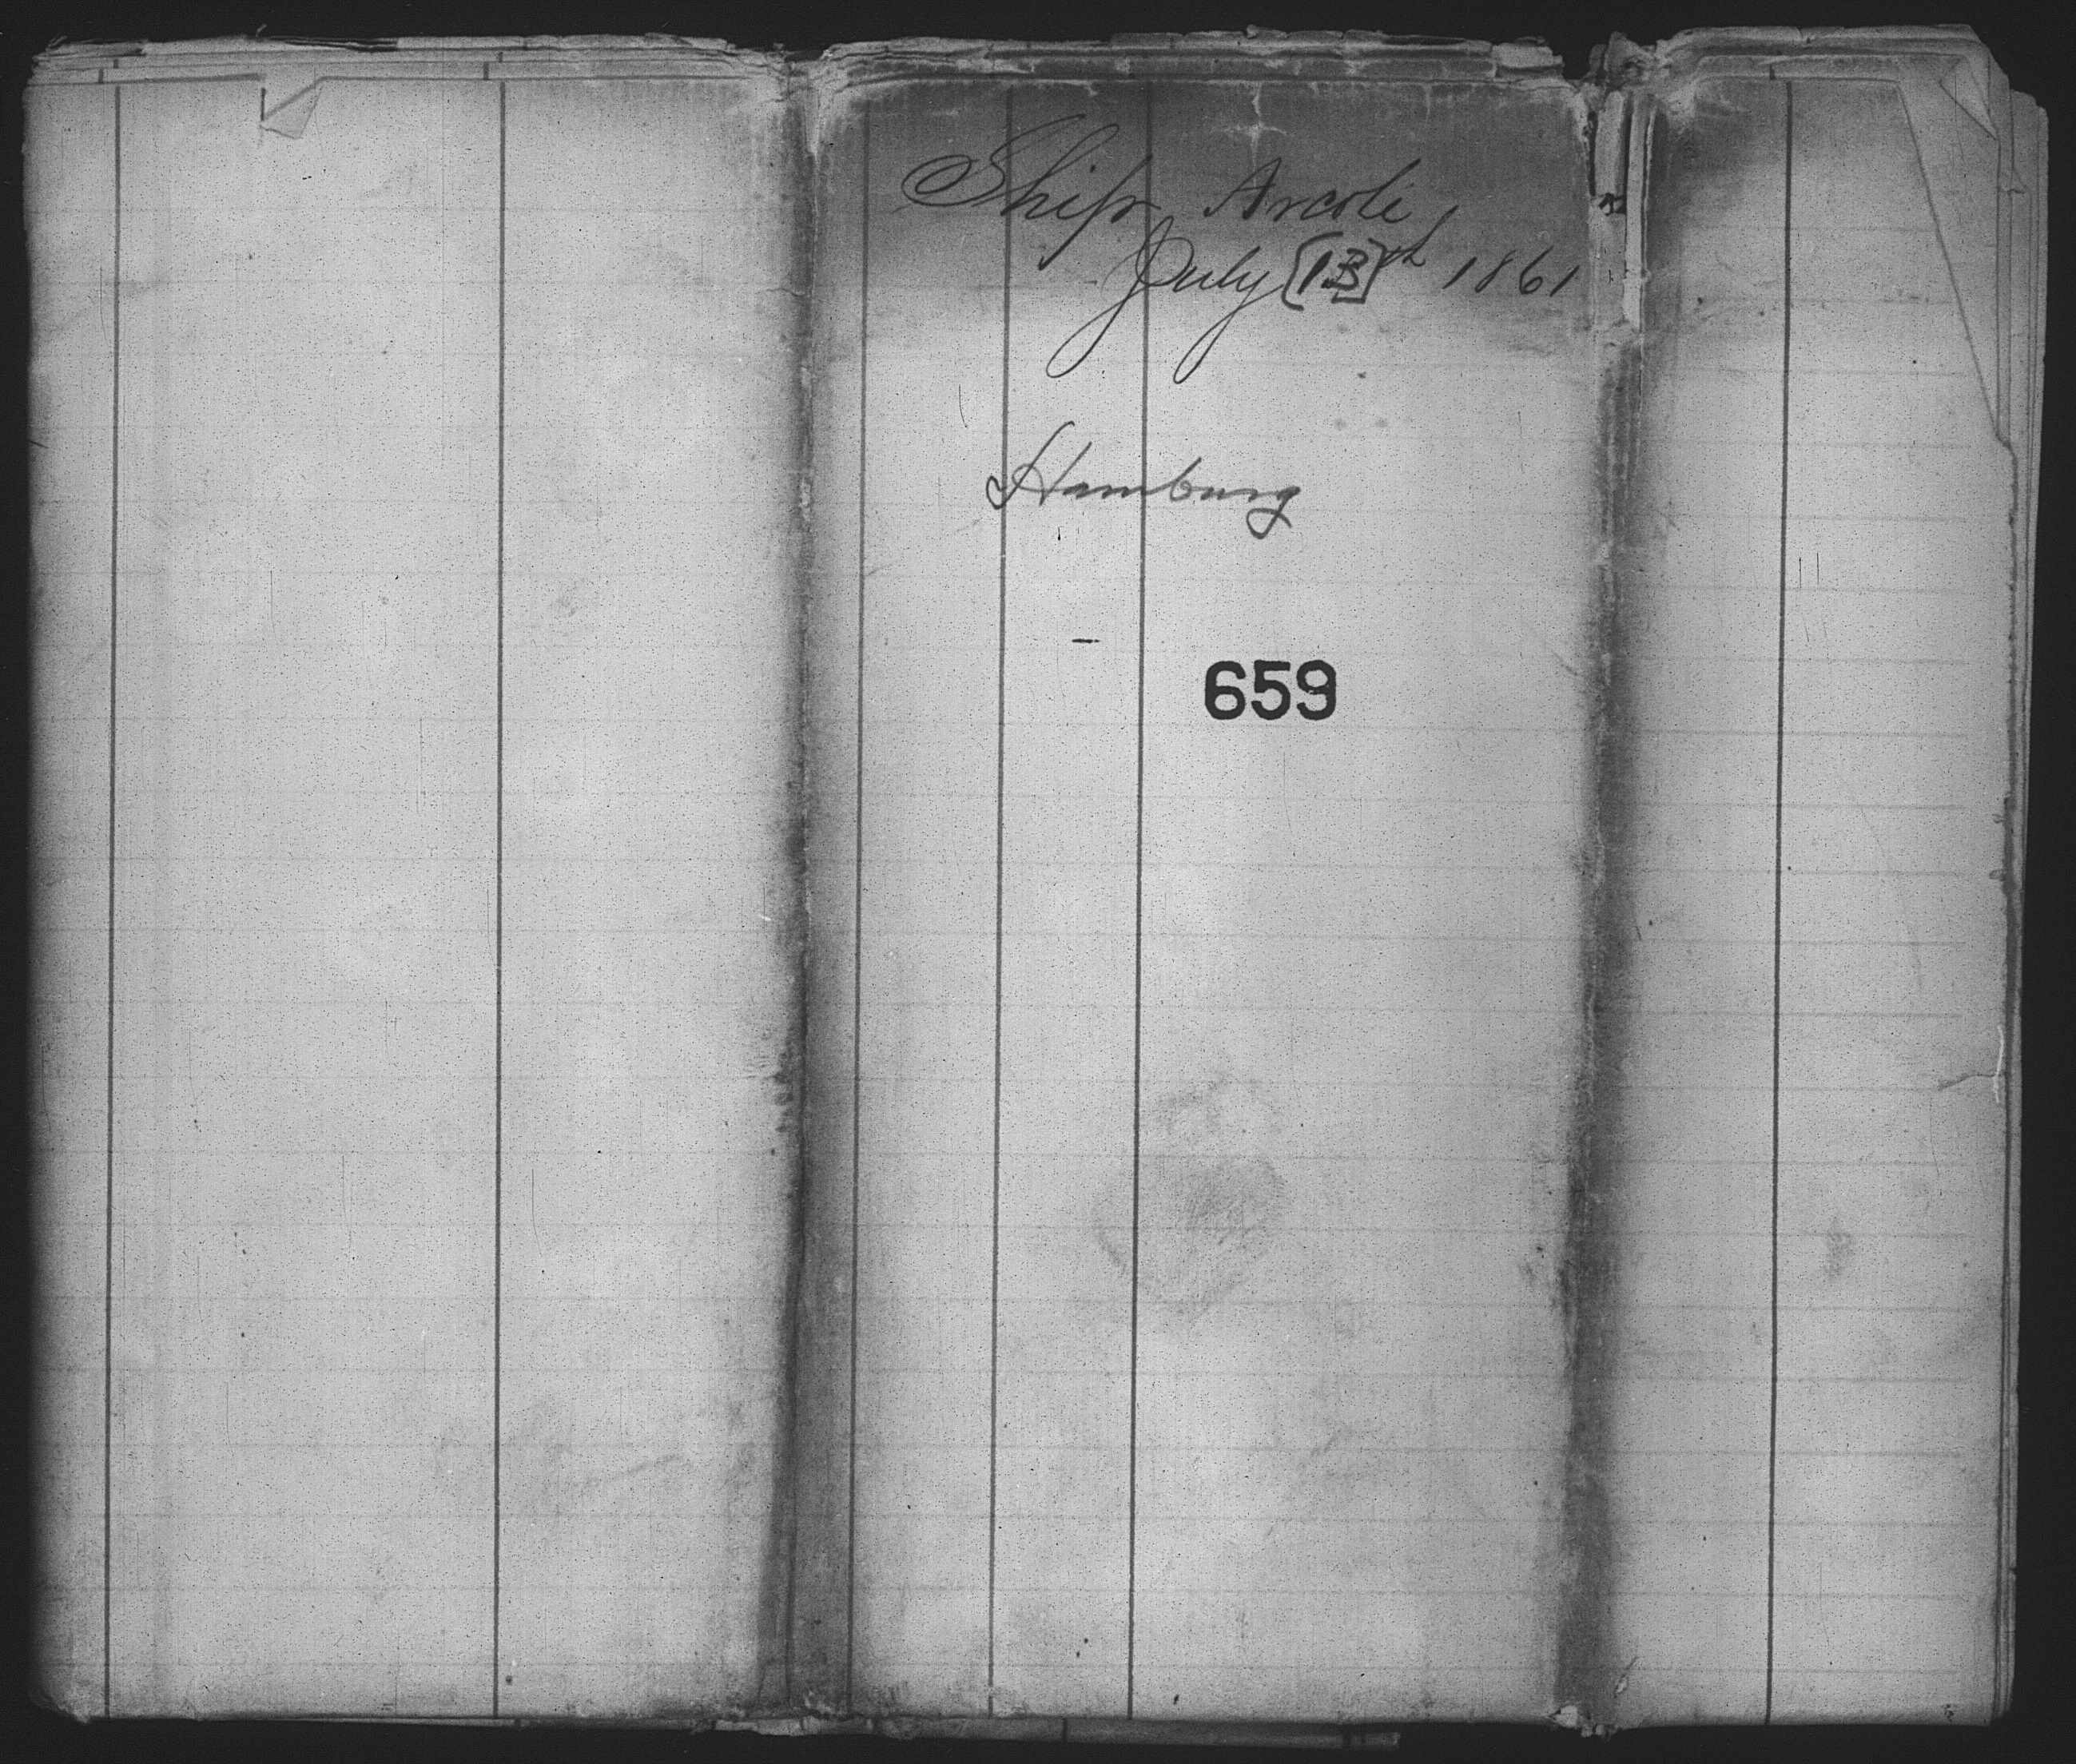 Ship Arcole
July [13]th 1861
Hamburg
659